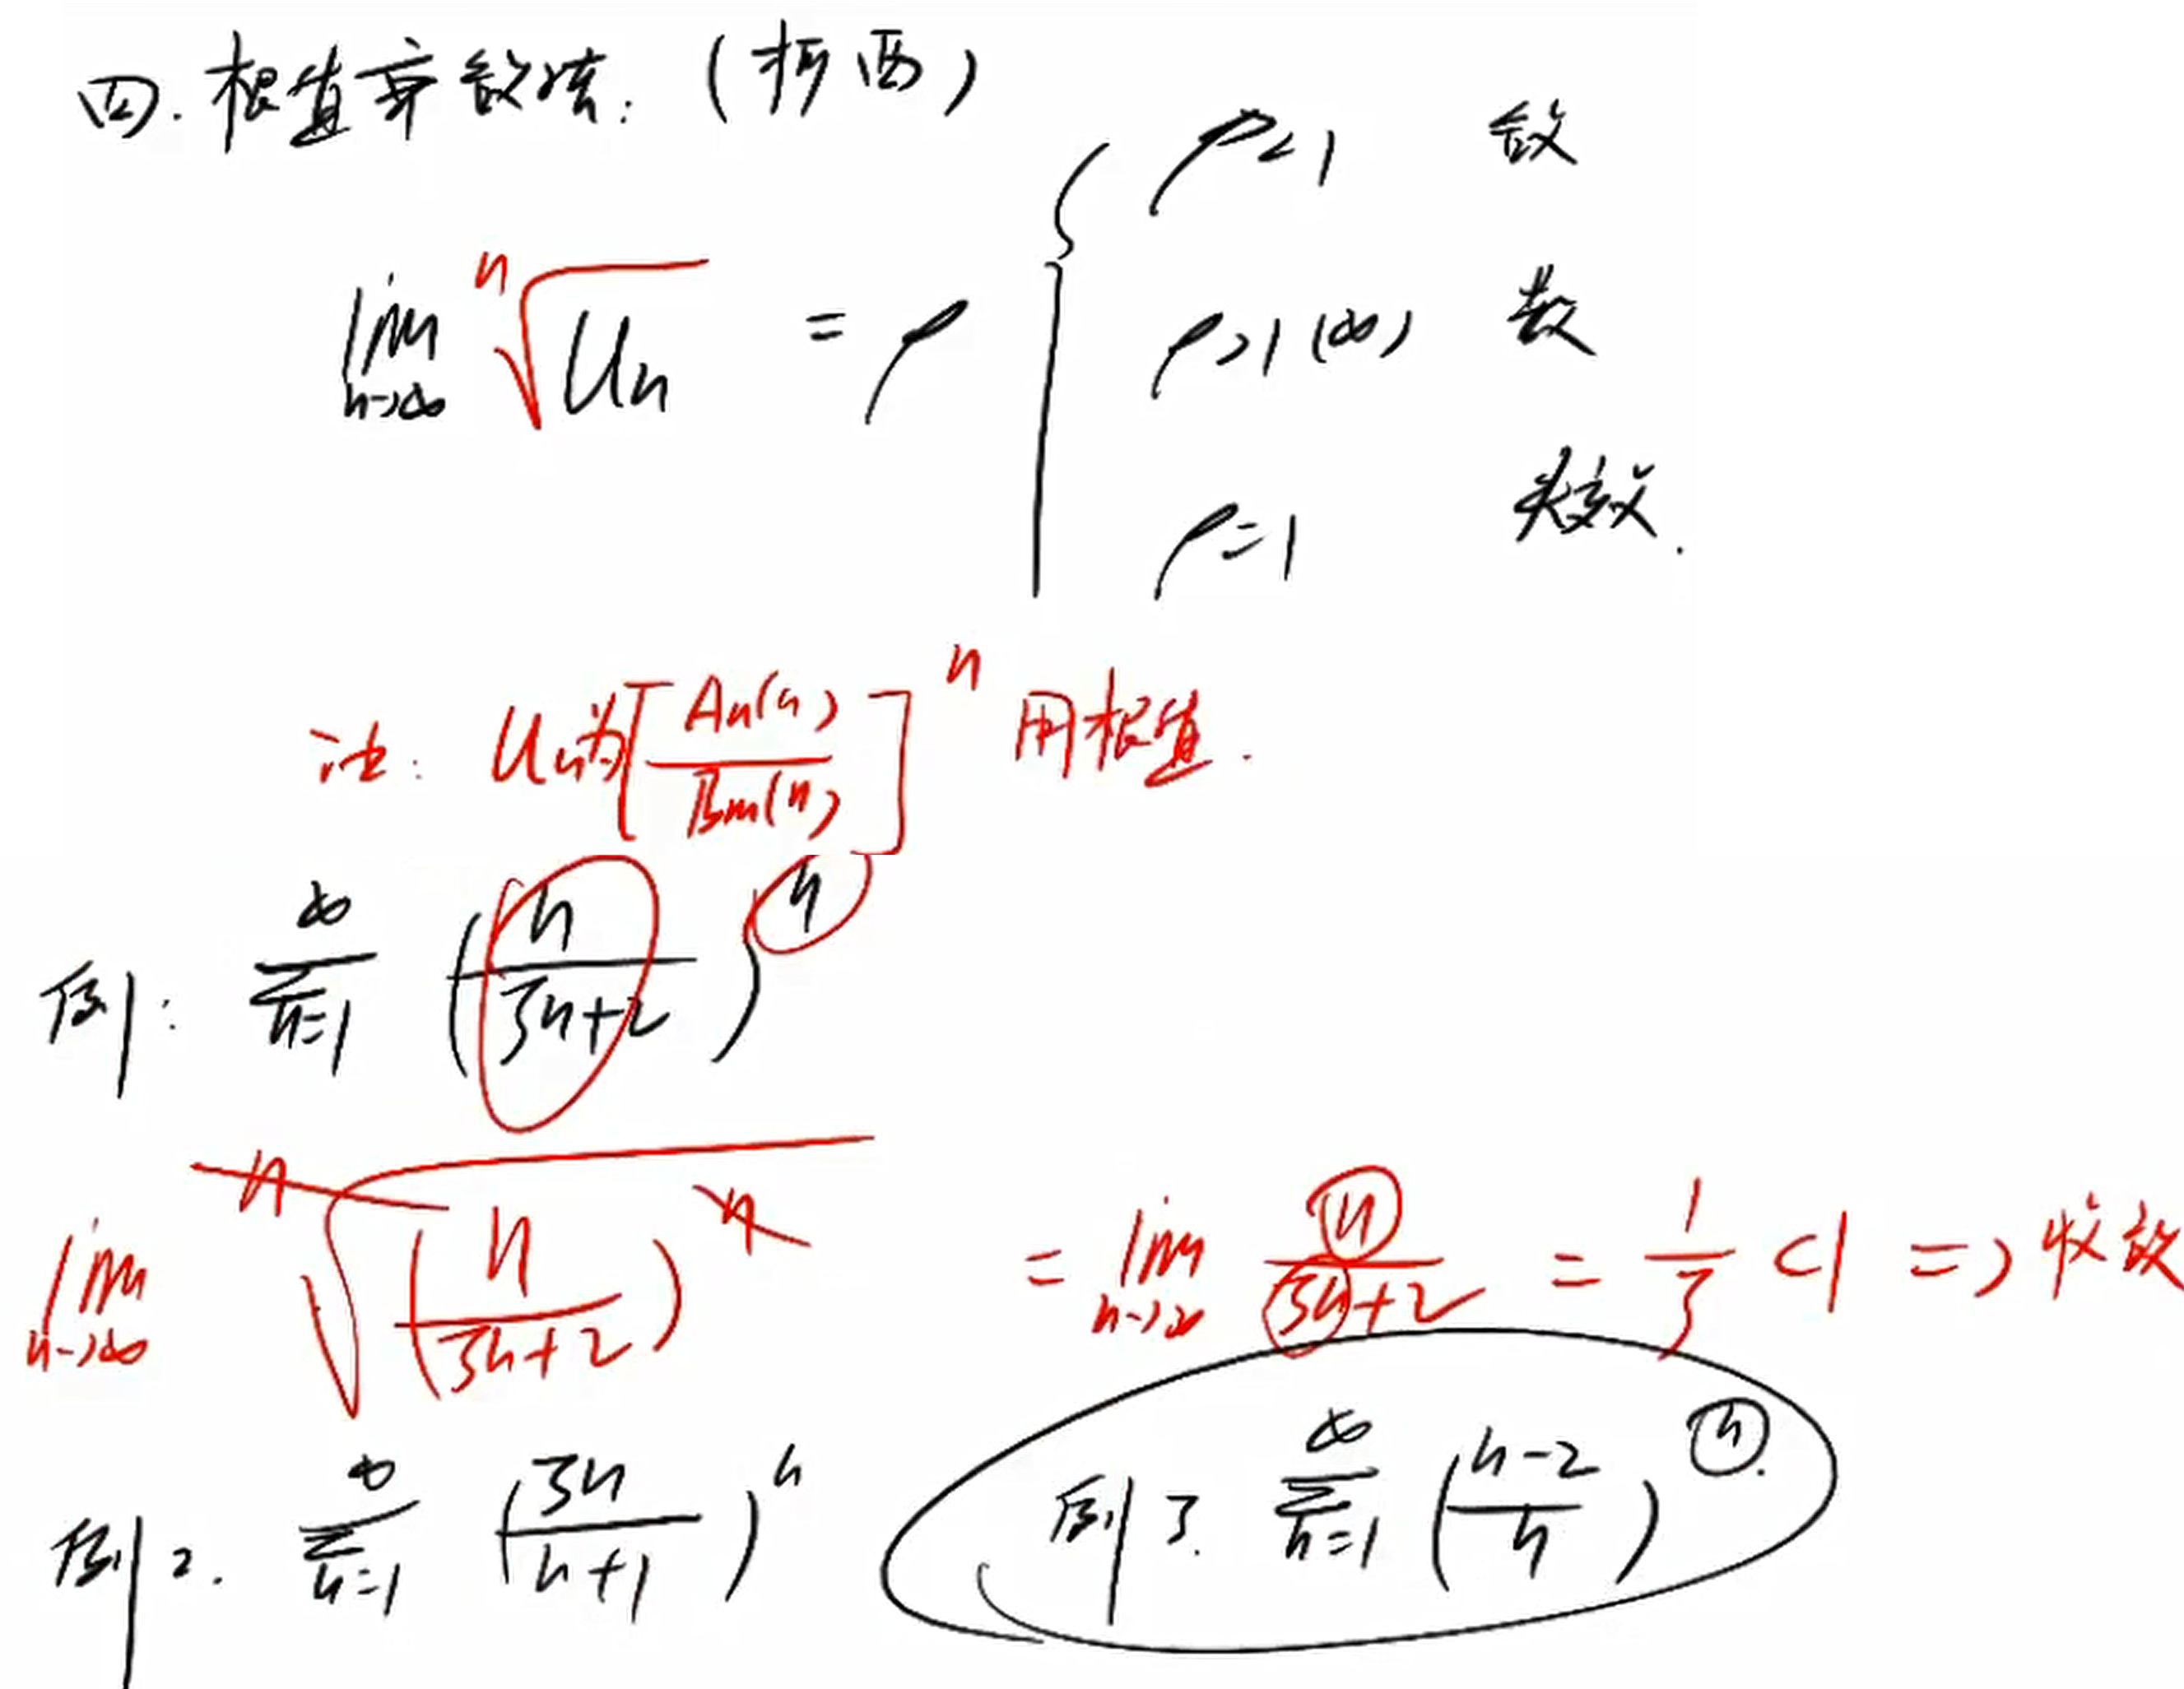 四. 根值审敛法: (柯西)
lim n→∞ ⁿ√Un = ρ { ρ<1 敛
ρ>1 (∞) 散
ρ=1 失效.
注: Un为[An(n)/Bm(n)]^n 用根值.
例: ∞ Σ n=1 (n/(3n+2))^n
lim n→∞ ⁿ√(n/(3n+2))^n = lim n→∞ n/(3n+2) = 1/3 <1 => 收敛
例2. ∞ Σ n=1 (3n/(n+1))^n 例3. ∞ Σ n=1 ((n-2)/n)^n.